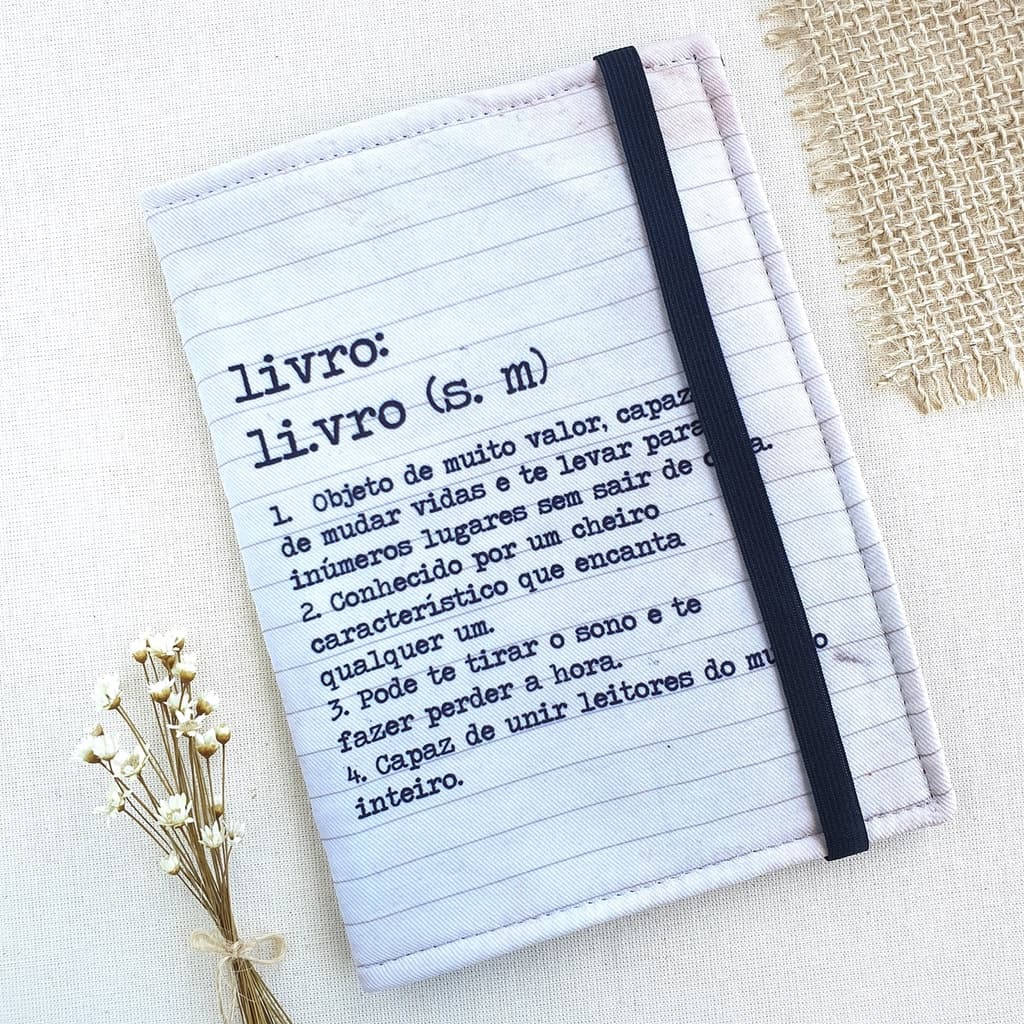 livro:
li.vro (s. m)
1. Objeto de muito valor, capaz
de mudar vidas e te levar para
inúmeros lugares sem sair de
2. Conhecido por um cheiro
característico que encanta
qualquer um.
3. Pode te tirar o sono e te
fazer perder a hora.
4. Capaz de unir leitores do
inteiro.